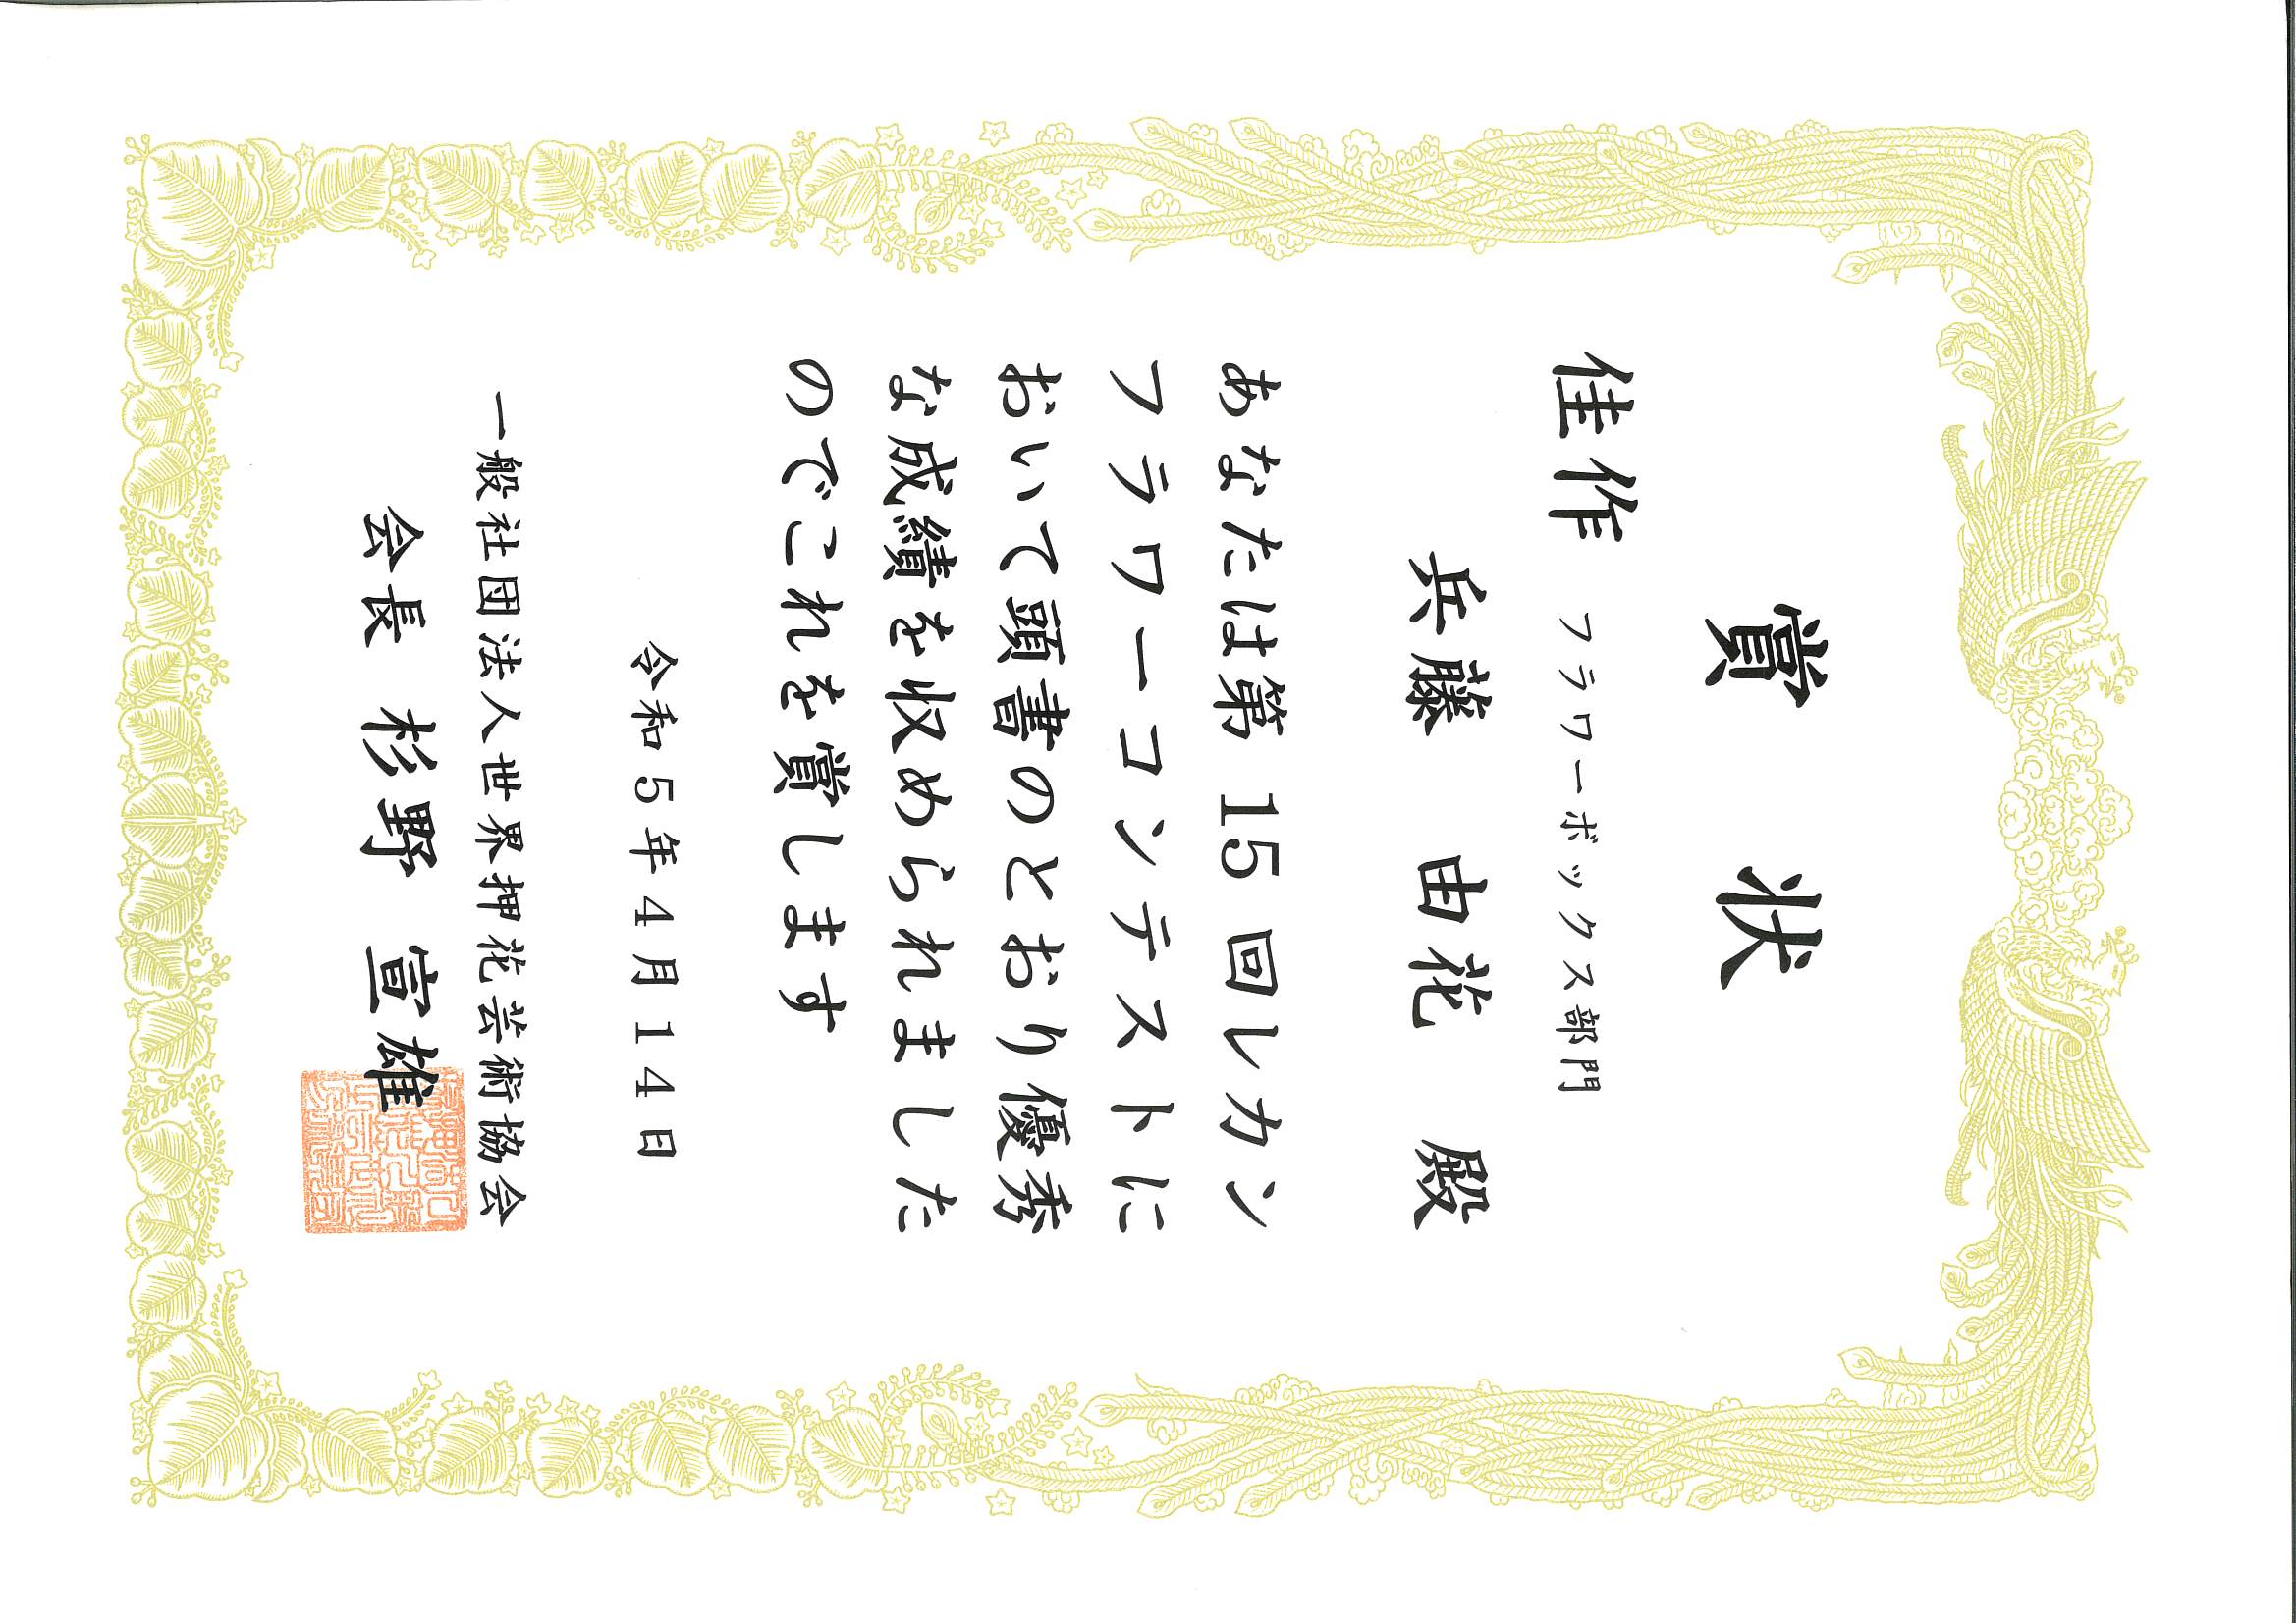 賞状
佳作 フラワーボックス部門
兵藤 由花 殿
あなたは第15回レカン
フラワーコンテストに
おいて頭書のとおり優秀
な成績を収められました
のでこれを賞します
令和5年4月14日
一般社団法人世界押花芸術協会
会長 杉野 宣雄